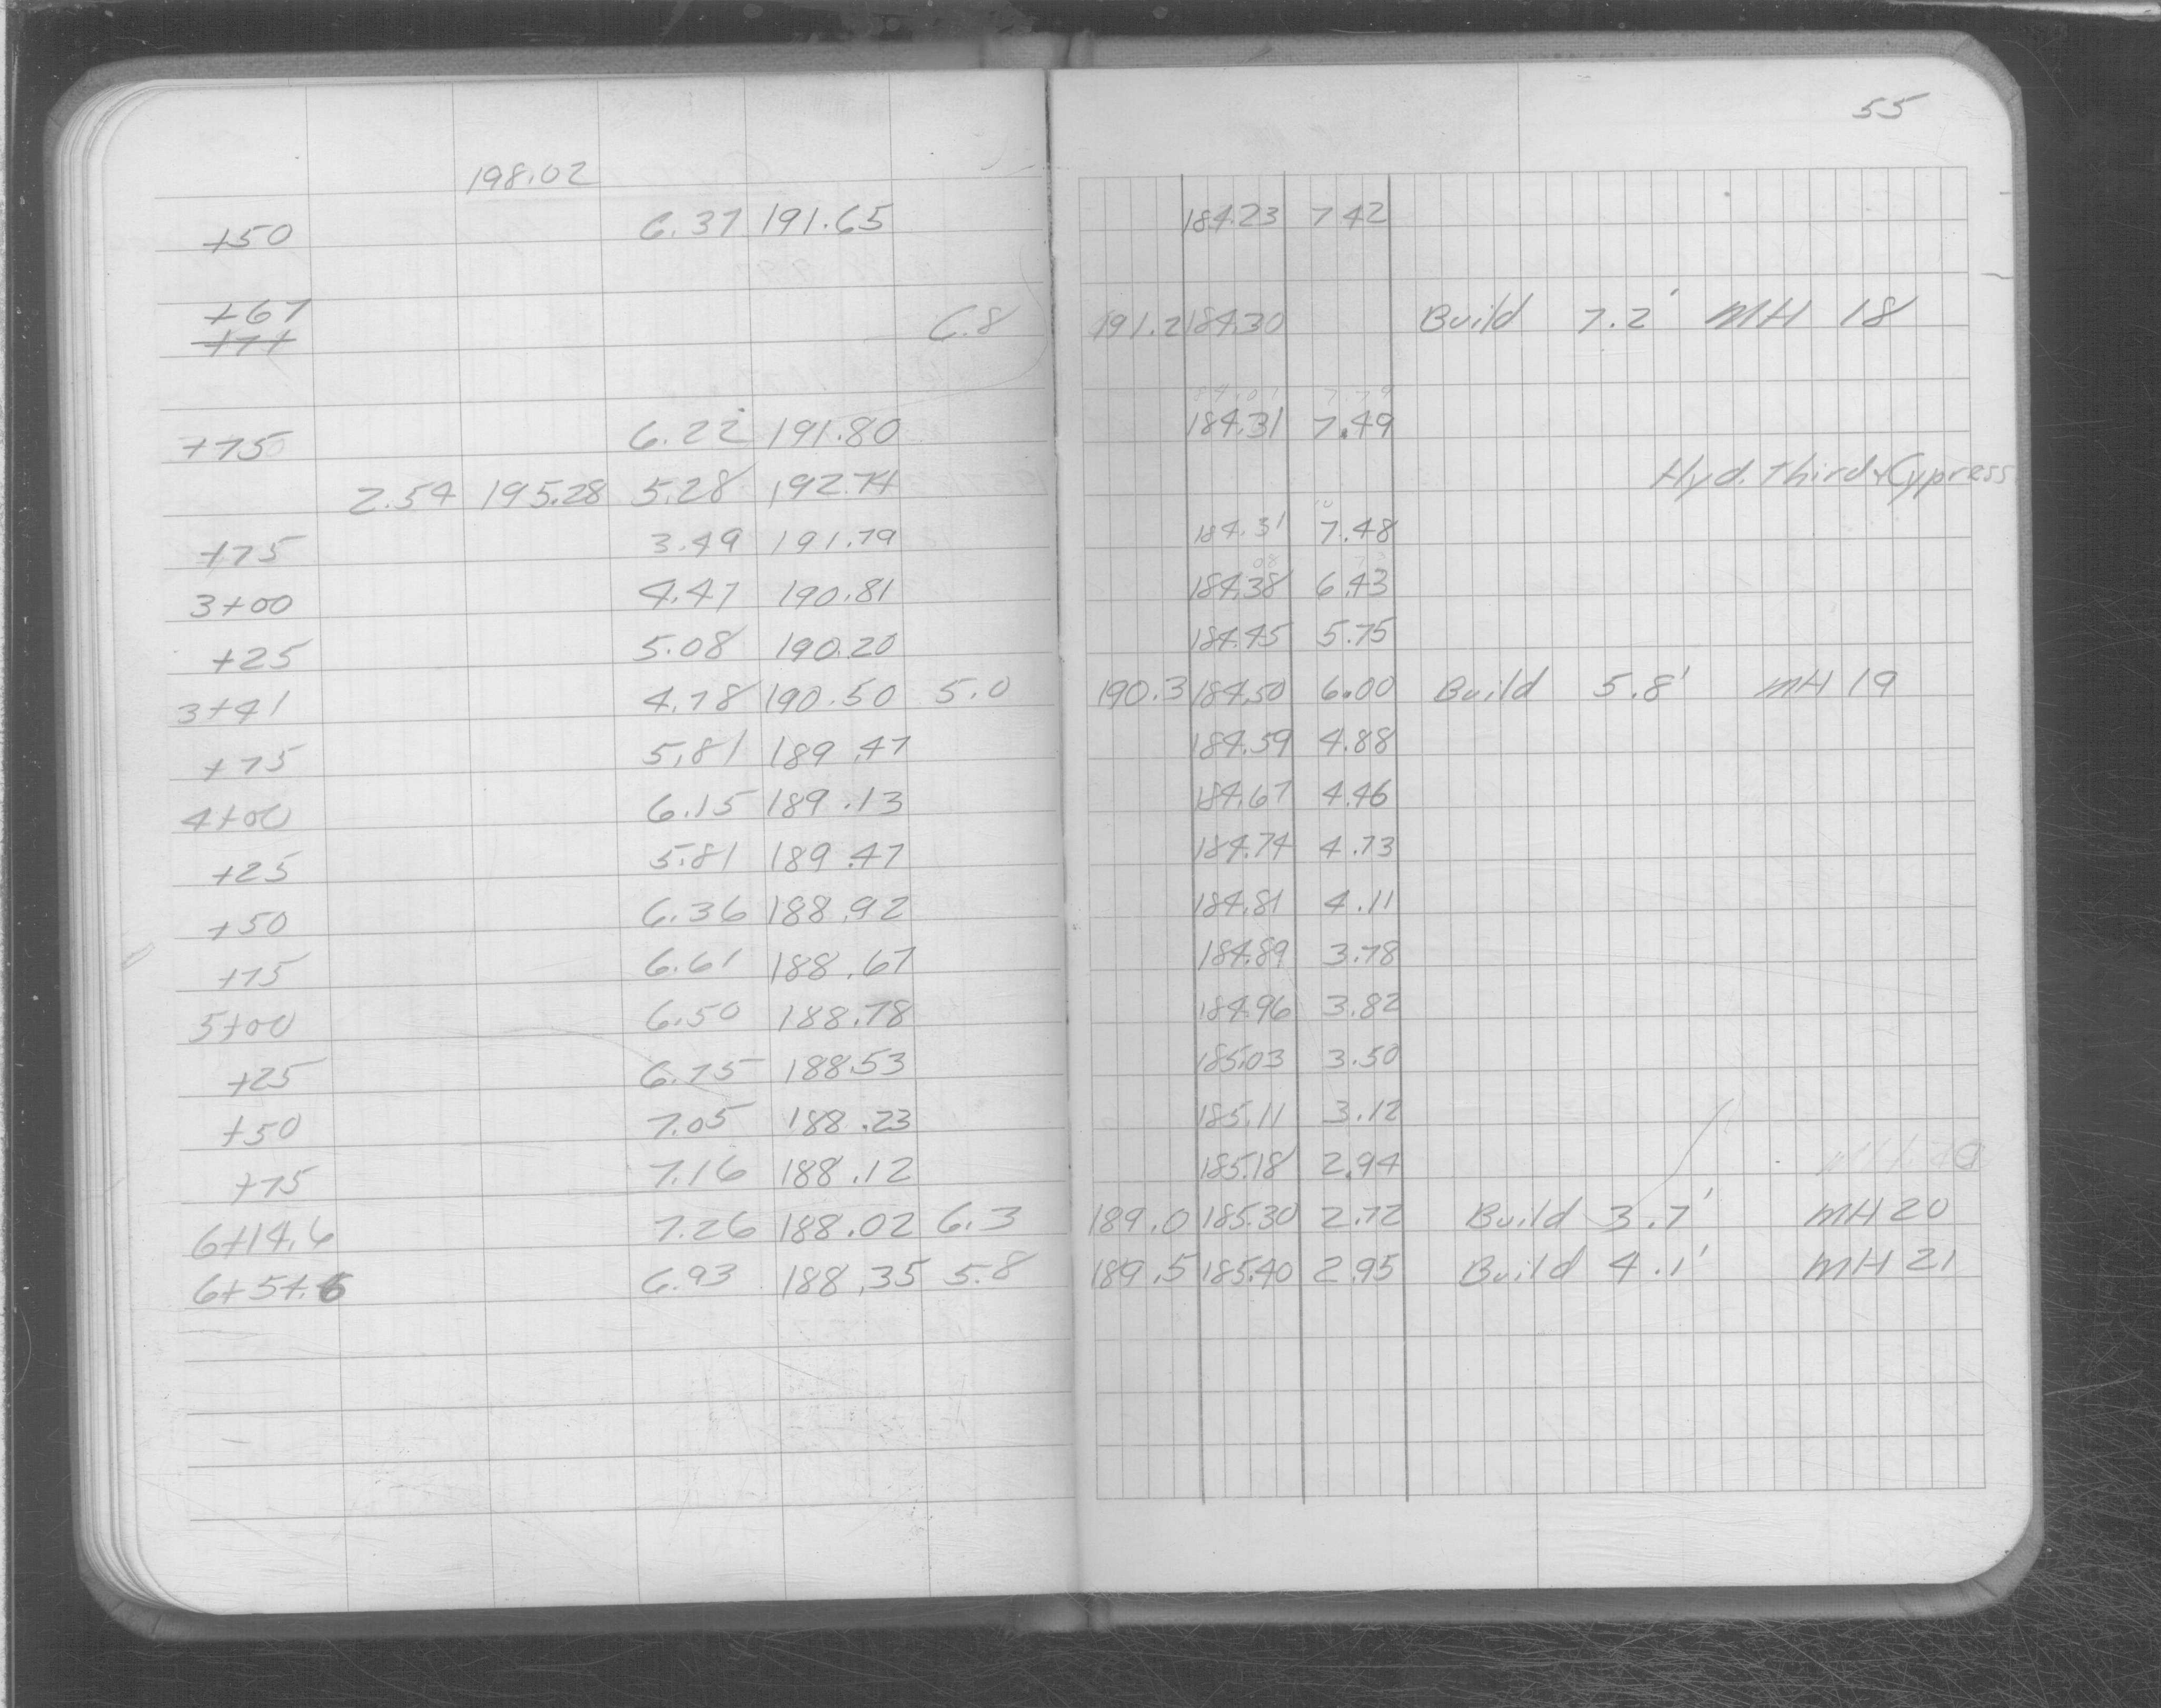 55
198.02
+50 6.37 191.65 184.23 7.42
+67 6.8 191.2 184.30 Build 7.2' MH 18
+71
+75 6.22 191.80 184.31 7.49
2.54 195.28 5.28 192.74 Hyd. Third & Cypress
+75 3.49 191.79 184.31 7.48
3+00 4.47 190.81 184.38 6.43
+25 5.08 190.20 184.45 5.75
3+41 4.78 190.50 5.0 190.3 184.50 6.00 Build 5.8' MH 19
+75 5.81 189.47 184.59 4.88
4+00 6.15 189.13 184.67 4.46
+25 5.81 189.47 184.74 4.73
+50 6.36 188.92 184.81 4.11
+75 6.61 188.67 184.89 3.78
5+00 6.50 188.78 184.96 3.82
+25 6.75 188.53 185.03 3.50
+50 7.05 188.23 185.11 3.12
+75 7.16 188.12 185.18 2.94
6+14.6 7.26 188.02 6.3 189.0 185.30 2.72 Build 3.7' MH 20
6+54.6 6.93 188.35 5.8 189.5 185.40 2.95 Build 4.1' MH 21